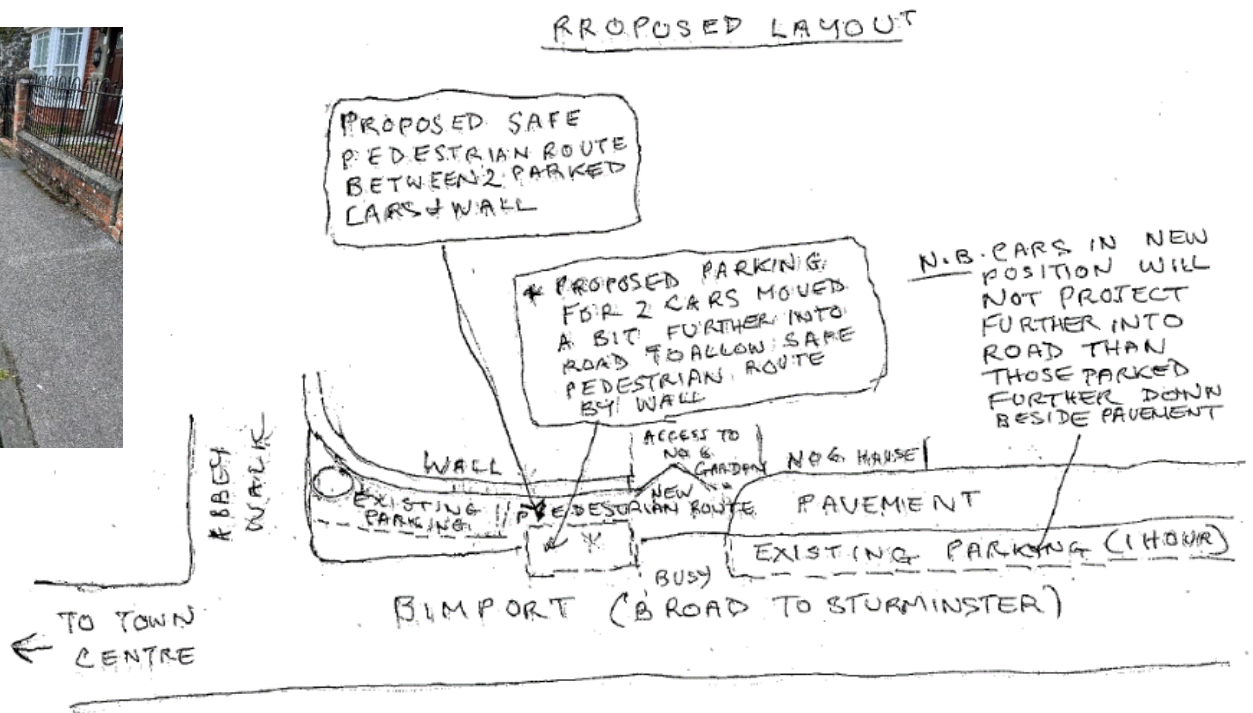 PROPOSED LAYOUT
PROPOSED SAFE
PEDESTRIAN ROUTE
BETWEEN 2 PARKED
CARS & WALL
* PROPOSED PARKING
FOR 2 CARS MOVED
A BIT FURTHER INTO
ROAD TO ALLOW SAFE
PEDESTRIAN ROUTE
BY WALL
N.B. CARS IN NEW
POSITION WILL
NOT PROJECT
FURTHER INTO
ROAD THAN
THOSE PARKED
FURTHER DOWN
BESIDE PAVEMENT
ABBEY
WALK
WALL
ACCESS TO
NO 6
GARDEN
NO 6 HOUSE
EXISTING
PARKING
NEW
PEDESTRIAN ROUTE
PAVEMENT
*
EXISTING PARKING (1 HOUR)
BUSY
BIMPORT (B ROAD TO STURMINSTER)
TO TOWN
CENTRE